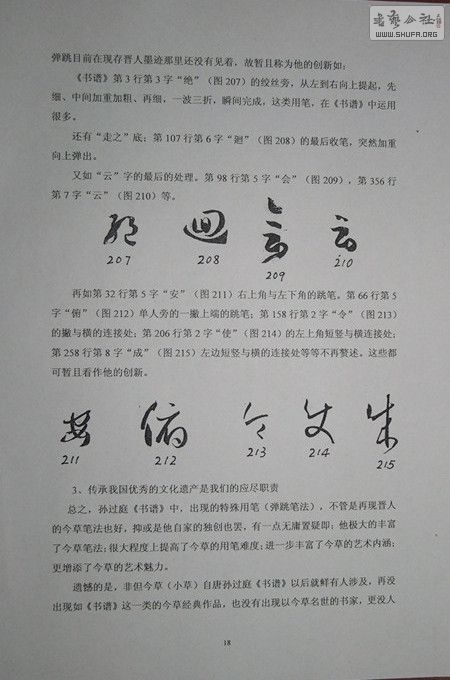 书艺公社
WWW.SHUFA.ORG
弹跳目前在现存晋人墨迹那里还没有见着，故暂且称为他的创新如；
《书谱》第 3 行第 3 字“绝”（图 207）的绞丝旁，从左到右向上提起，先
细、中间加重加粗、再细，一波三折，瞬间完成，这类用笔，在《书谱》中运用
很多。
还有“走之”底；第 107 行第 6 字“廻”（图 208）的最后收笔，突然加重
向上弹出。
又如“云”字的最后的处理。第 98 行第 5 字“会”（图 209），第 356 行
第 7 字“云”（图 210）等。
207 208 209 210
再如第 32 行第 5 字“安”（图 211）右上角与左下角的跳笔。第 66 行第 5
字“俯”（图 212）单人旁的一撇上端的跳笔；第 158 行第 2 字“令”（图 213）
的撇与横的连接处；第 206 行第 2 字“使”（图 214）的左上角短竖与横连接处；
第 258 行第 8 字“成”（图 215）左边短竖与横的连接处等等不再赘述。这些都
可暂且看作他的创新。
211 212 213 214 215
3、传承我国优秀的文化遗产是我们的应尽职责
总之，孙过庭《书谱》中，出现的特殊用笔（弹跳笔法），不管是再现晋人
的今草笔法也好，抑或是他自家的独创也罢，有一点无庸置疑即；他极大的丰富
了今草笔法；很大程度上提高了今草的用笔难度；进一步丰富了今草的艺术内涵；
更增添了今草的艺术魅力。
遗憾的是，非但今草（小草）自唐孙过庭《书谱》以后就鲜有人涉及，再没
出现如《书谱》这一类的今草经典作品，也没有出现以今草名世的书家，更没人
18